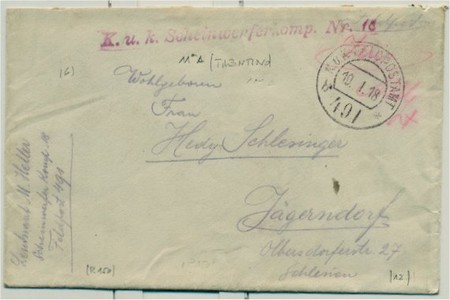 K. u. k. Scheinwerferkomp. Nr. 18
Feldpost
K.u.K. FELDPOSTAMT
10. I. 18
491
(TRENTINO)
Wohlgeboren
Frau
Hedy Schlesinger
Jägerndorf
Olbersdorferstr. 27
Schlesien
M. Heller
Scheinwerfer Komp. 18
Feldpost 491